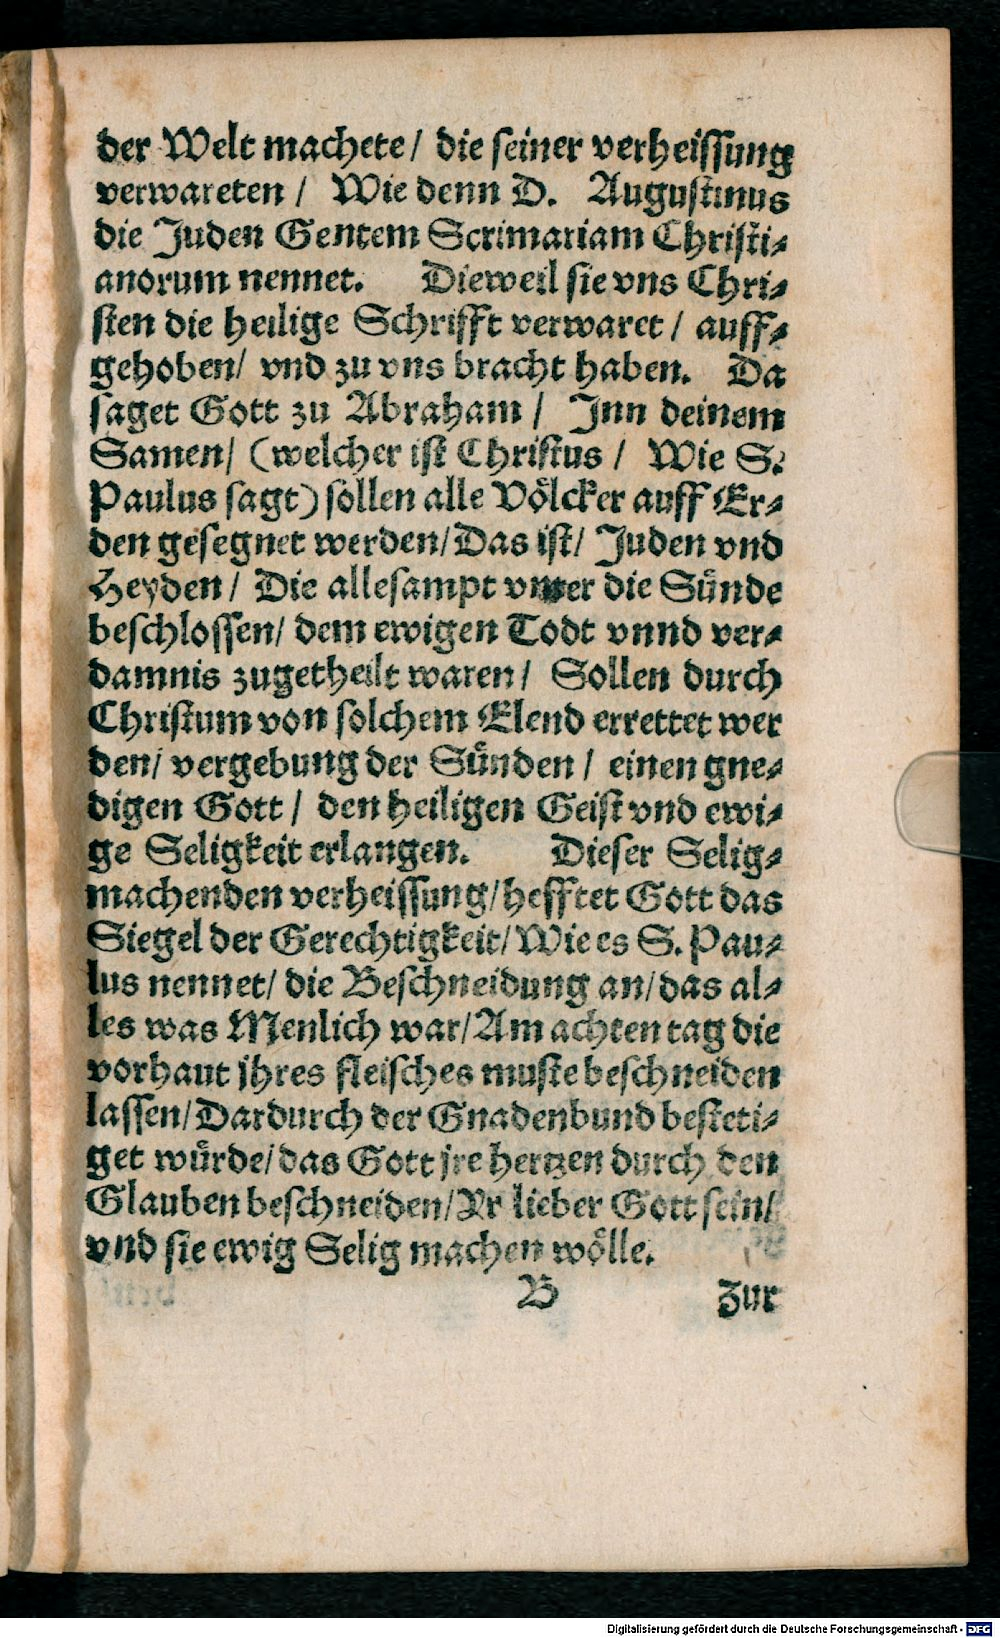 der Welt machete/ die seiner verheissung
verwareten/ Wie denn D. Augustinus
die Juden Gentem Scrimariam Christi⸗
anorum nennet. Dieweil sie vns Chri⸗
sten die heilige Schrifft verwaret/ auff⸗
gehoben/ vnd zu vns bracht haben. Da
saget Gott zu Abraham/ Jnn deinem
Samen/ (welcher ist Christus/ Wie S.
Paulus sagt) sollen alle Völcker auff Er⸗
den gesegnet werden/ Das ist/ Juden vnd
Heyden/ Die allesampt vnter die Sünde
beschlossen/ dem ewigen Todt vnnd ver⸗
damnis zugetheilt waren/ Sollen durch
Christum von solchem Elend errettet wer
den/ vergebung der Sünden/ einen gne⸗
digen Gott/ den heiligen Geist vnd ewi⸗
ge Seligkeit erlangen. Dieser Selig⸗
machenden verheissung/ hefftet Gott das
Siegel der Gerechtigkeit/ Wie es S. Pau⸗
lus nennet/ die Beschneidung an/ das al⸗
les was Menlich war/ Am achten tag die
vorhaut jhres fleisches muste beschneiden
lassen/ Dardurch der Gnadenbund besteti⸗
get würde/ das Gott jre hertzen durch den
Glauben beschneiden/ Jr lieber Gott sein/
vnd sie ewig Selig machen wölle.
B Zur
Digitalisierung gefördert durch die Deutsche Forschungsgemeinschaft - DFG